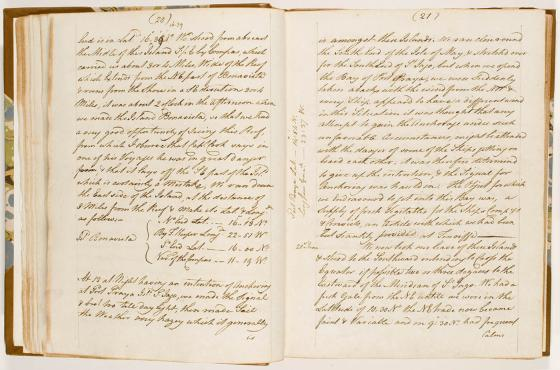 (20)
land is in Lat. 16..39 N. We stood from abreast
the Middle of this Island S.½E. by Compass, which
carried us about 3 or 4 Miles W. side of the Reef
which extends from the part of Bonavista
& runs from the Shore in a direction 3 or 4
Miles, it was about 2 o'Clock in the afternoon when
we made the Island Bonavista, so that we had
a very good opportunity of seeing this Reef,
from which I observe that Capt. Cook says in
one of his Voyages he was in great danger
from & that it lays off the part of the Isl.d
which is certainly a Mistake. We ran down
the East side of the Island, at the distance of
Miles from the Reef & make its Lat. & Long.
as follows
N. End Lat. 16..13 N.
By Time keeper Long. 22..51 W
I.d Bonavista
S. End Lat. 16..00 N.
Var. of the Compass is 11..13 W.
At 12 at Night having an intention of anchoring
at Port Praya I.d S.t Iago, we made the Signal
& brought too till day light, then made Sail
the Weather very hazey which it generally
is
(21)
is amongst these Islands. We ran close round
the South End of the Isle of May, & stretched over
for the South End of S.t Iago, but when we opened
the Bay of Port Praya, we were suddenly
taken aback with the wind from the &
every Ship appeared to have a different wind
in this Situation it was thought that any
attempt to gain the Anchorage under such
unfavorable Circumstances, might be attended
with the danger of some of the Ships getting on
board each other, it was therefore determined
to give up the intention, & the Signal for
Anchoring was hauled in. The Object for which
we endeavoured to get into this Bay was, a
supply of fresh Vegitables for the Ships Companys
& Convicts, an Article with which we had been
but scantily provided at Teneriffe
We now took our leave of these Islands
& Stood to the Southward intending to Cross the
Equator if possible two or three degrees to the
Eastward of the Meridian of S.t Iago. We had a
fresh Gale from the N.E. while we were in the
Latitude of 10.30 N. the N.E. trade now became
faint & Variable and in 9..30 N. had frequent
Calms